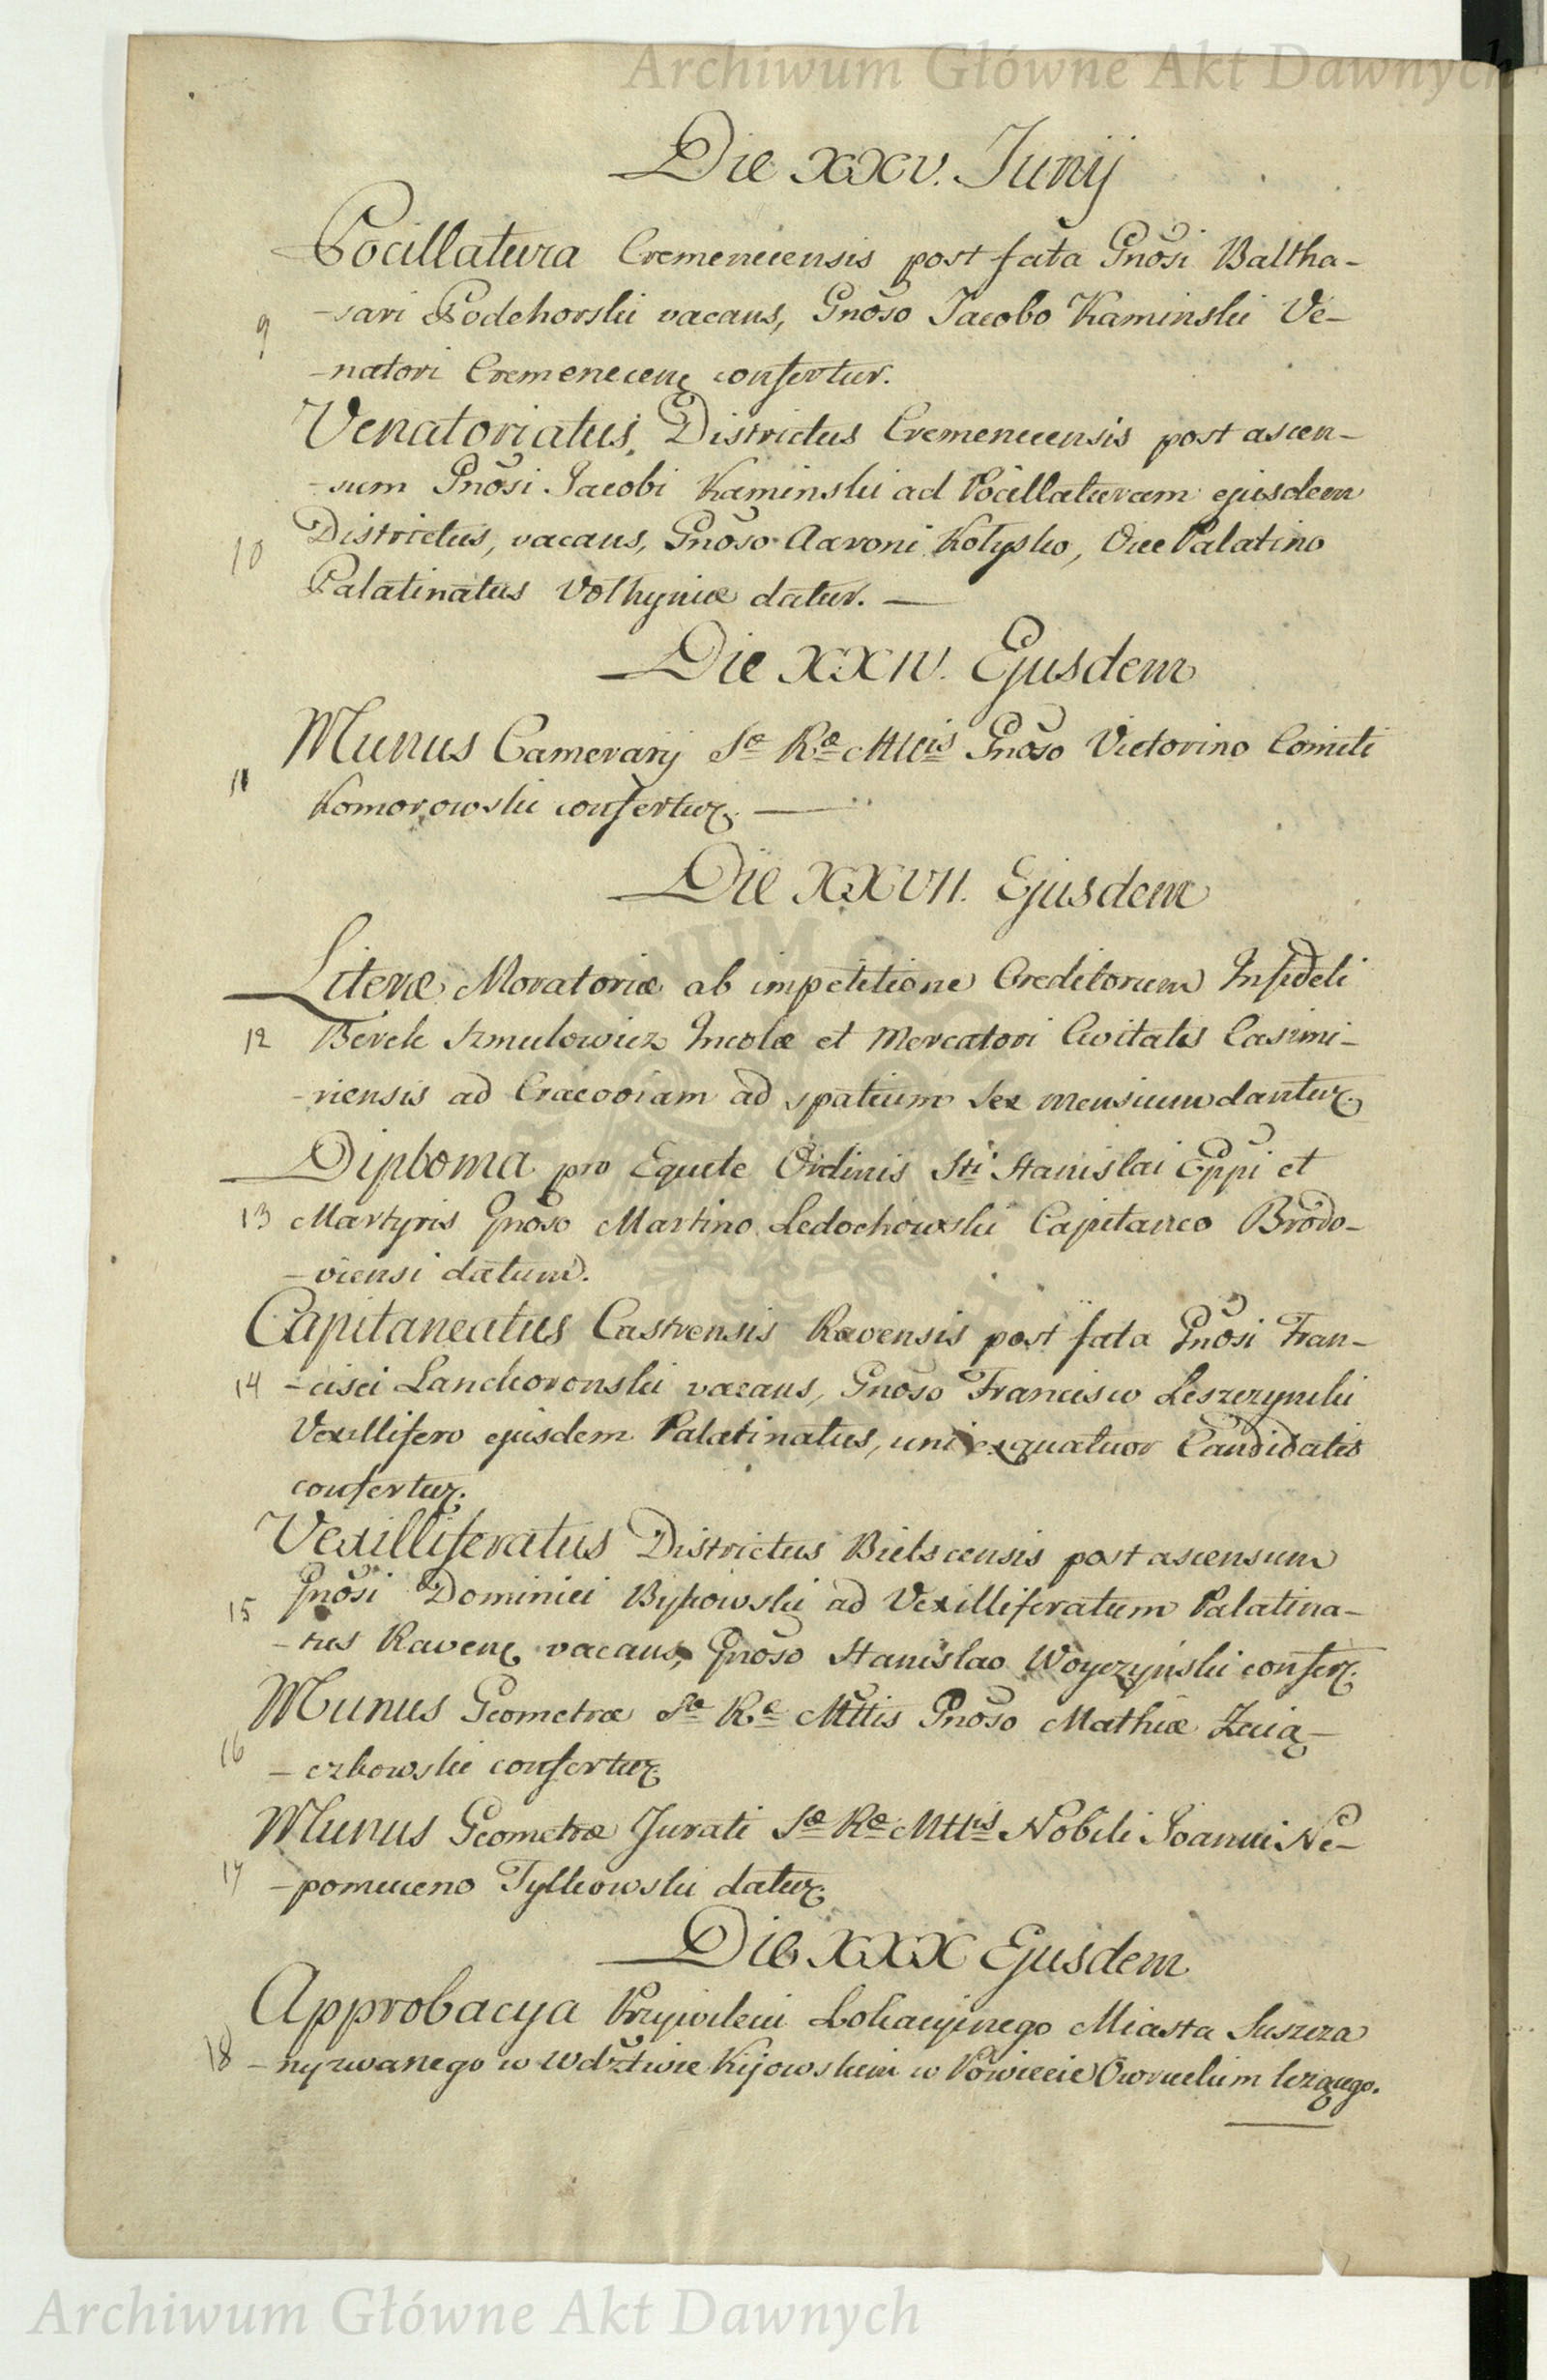 Archiwum Główne Akt Dawnych
Die XXV. Junij
Pocillatura Cremenecensis post fata Gnosi Baltha-
9 -sari Podchorski vacans, Gnoso Jacobo Kaminski Ve-
-natori Cremenecens confertur.
Venatoriatus Districtus Cremenecensis post ascen-
-sum Gnosi Jacobi Kaminski ad Pocillaturam ejusdem
10 Districtus, vacans, Gnoso Aaroni Kołysko, Vice Palatino
Palatinatus Volhyniæ datur. —
Die XXIV. Ejusdem
Munus Camerarij Sæ Ræ Mttis Gnoso Victorino Comiti
11 Komorowski confertur. —
Die XXVII. Ejusdem
Literæ Moratoriæ ab impetitione Creditorum Infideli
12 Berek Szmulowicz Incolæ et Mercatori Civitatis Casimi-
-riensis ad Cracoviam ad spatium sex mensium dantur.
Diploma pro Equite Ordinis Sti Stanislai Eppi et
13 Martyris Gnoso Martino Ledochowski Capitaneo Brodo-
-viensi datum.
Capitaneatus Castrensis Ravensis post fata Gnosi Fran-
14 -cisci Lanckoronski vacans, Gnoso Francisco Leszczynski
Vexillifero ejusdem Palatinatus, uni ex quatuor Candidatis
confertur.
Vexilliferatus Districtus Bielscensis post ascensum
15 Gnosi Dominici Bykowski ad Vexilliferatum Palatina-
-tus Ravens vacans, Gnoso Stanislao Woyczyński confer.
Munus Geometræ Sæ Ræ Mttis Gnoso Mathiæ
16 -czkowski confertur.
Munus Geometræ Jurati Sæ Ræ Mttis Nobili Joanni Ne-
17 -pomuceno Tylkowski datur.
Die XXX Ejusdem
Approbacya Przywileiu Lokacyinego Miasta Suszcza
18 -ny zwanego w Wdztwie Kijowskim w Powiecie Owruckim leżącego.
Archiwum Główne Akt Dawnych